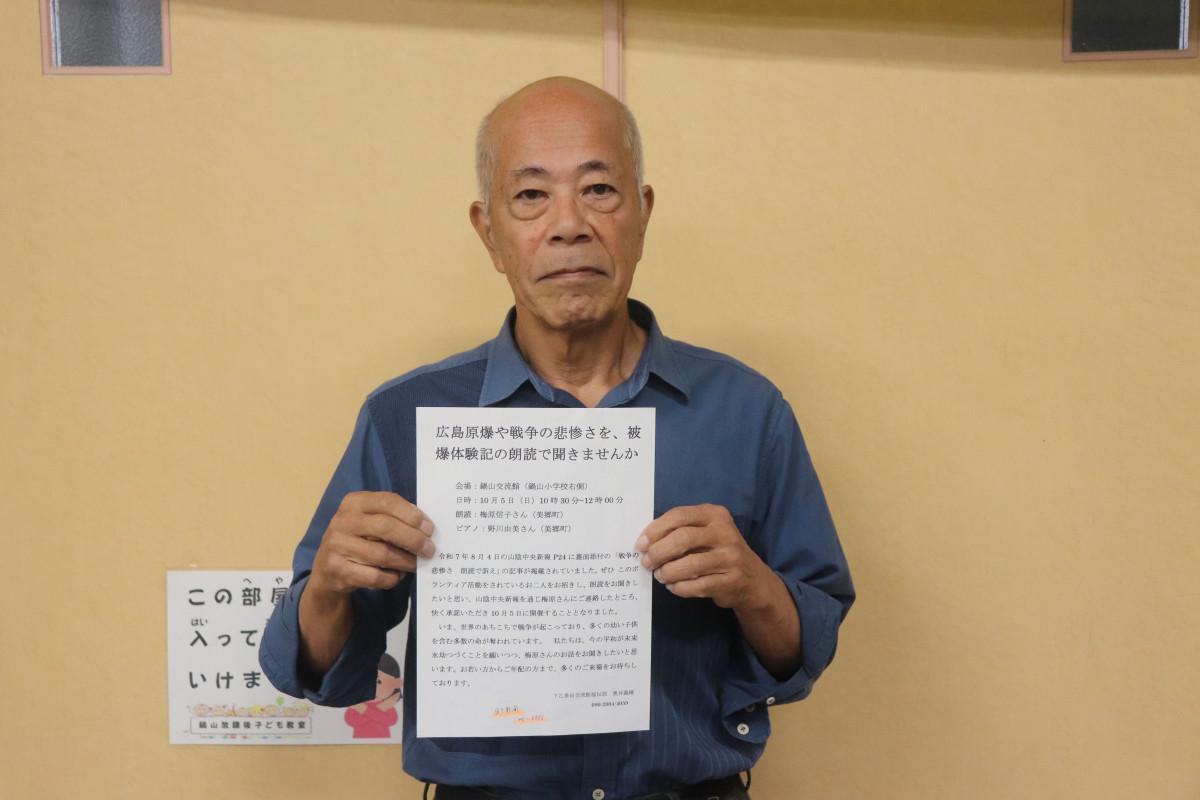 広島原爆や戦争の悲惨さを、被
爆体験記の朗読で聞きませんか
会場：鍋山交流館（鍋山小学校右側）
日時：10月5日（日）10時30分~12時00分
朗読：梅原信子さん（美郷町）
ピアノ：野川由美さん（美郷町）
令和7年8月4日の山陰中央新報P24に裏面添付の「戦争の
悲惨さ　朗読で訴え」の記事が掲載されていました。ぜひ このボ
ランティア活動をされているお二人をお招きし、朗読をお聞きし
たいと思い、山陰中央新報を通じ梅原さんにご連絡したところ、
快く承諾いただき10月5日に開催することとなりました。
いま、世界のあちこちで戦争が起こっており、多くの幼い子供
を含む多数の命が奪われています。　私たちは、今の平和が未来
永劫つづくことを願いつつ、梅原さんのお話をお聞きしたいと思
います。お若い方からご年配の方まで、多くのご来場をお待ちし
ております。
へや
この部屋
はい
入って
いけま
鍋山放課後子ども教室